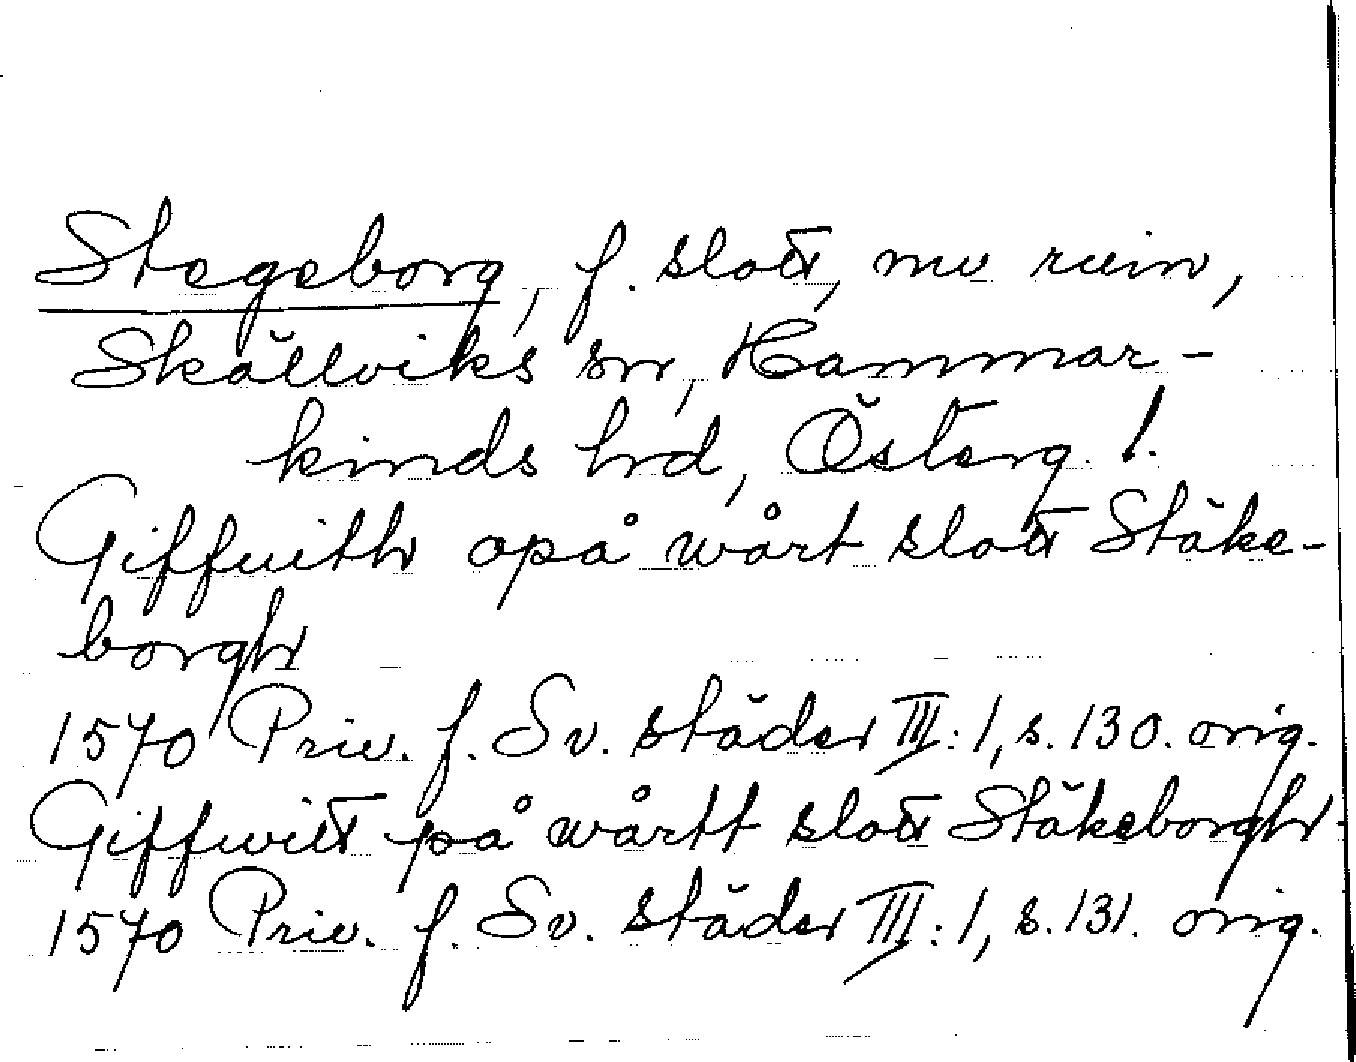 Stegeborg, f. slott, nu ruin,
Skällviks sn, Hammar-
kinds hd, Österg. l.
Giffuith opå wårt slott Stäke-
borgh
1570 Priv. f. Sv. städer III:1, s. 130. orig.
Giffwitt på wårtt slott Stäkeborgh.
1570 Priv. f. Sv. städer III:1, s. 131. orig.